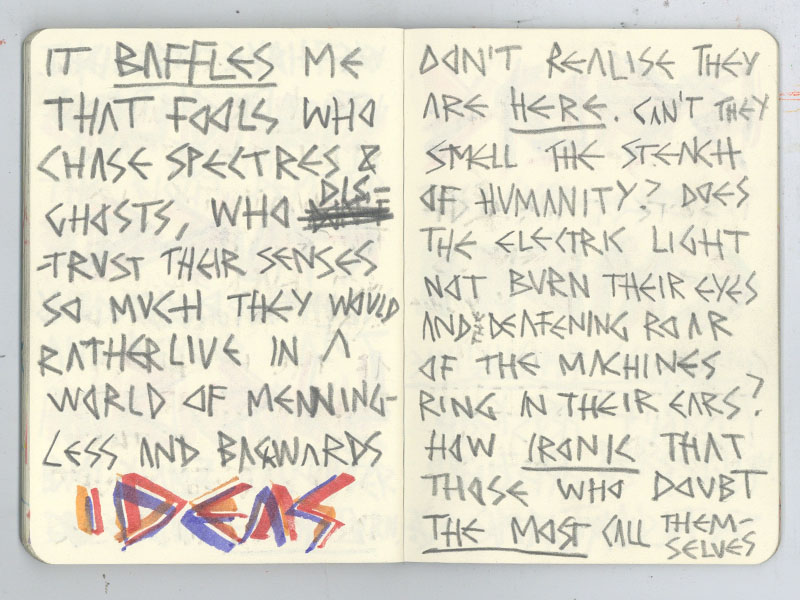 IT BAFFLES ME
THAT FOOLS WHO
CHASE SPECTRES &
GHOSTS, WHO DIS-
-TRUST THEIR SENSES
SO MUCH THEY WOULD
RATHER LIVE IN A
WORLD OF MENNING-
LESS AND BACKWARDS
IDEAS
DON'T REALISE THEY
ARE HERE. CAN'T THEY
SMELL THE STENCH
OF HUMANITY? DOES
THE ELECTRIC LIGHT
NOT BURN THEIR EYES
AND THE DEAFENING ROAR
OF THE MACHINES
RING IN THEIR EARS?
HOW IRONIC THAT
THOSE WHO DOUBT
THE MOST CALL THEM-
SELVES